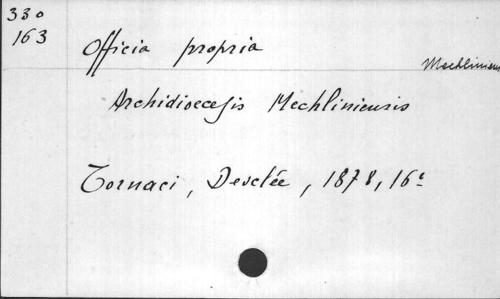 330
163
Officia propria
Mechliniens
Archidioecesis Mechliniensis
Tornaci, Desclée, 1878, 16°